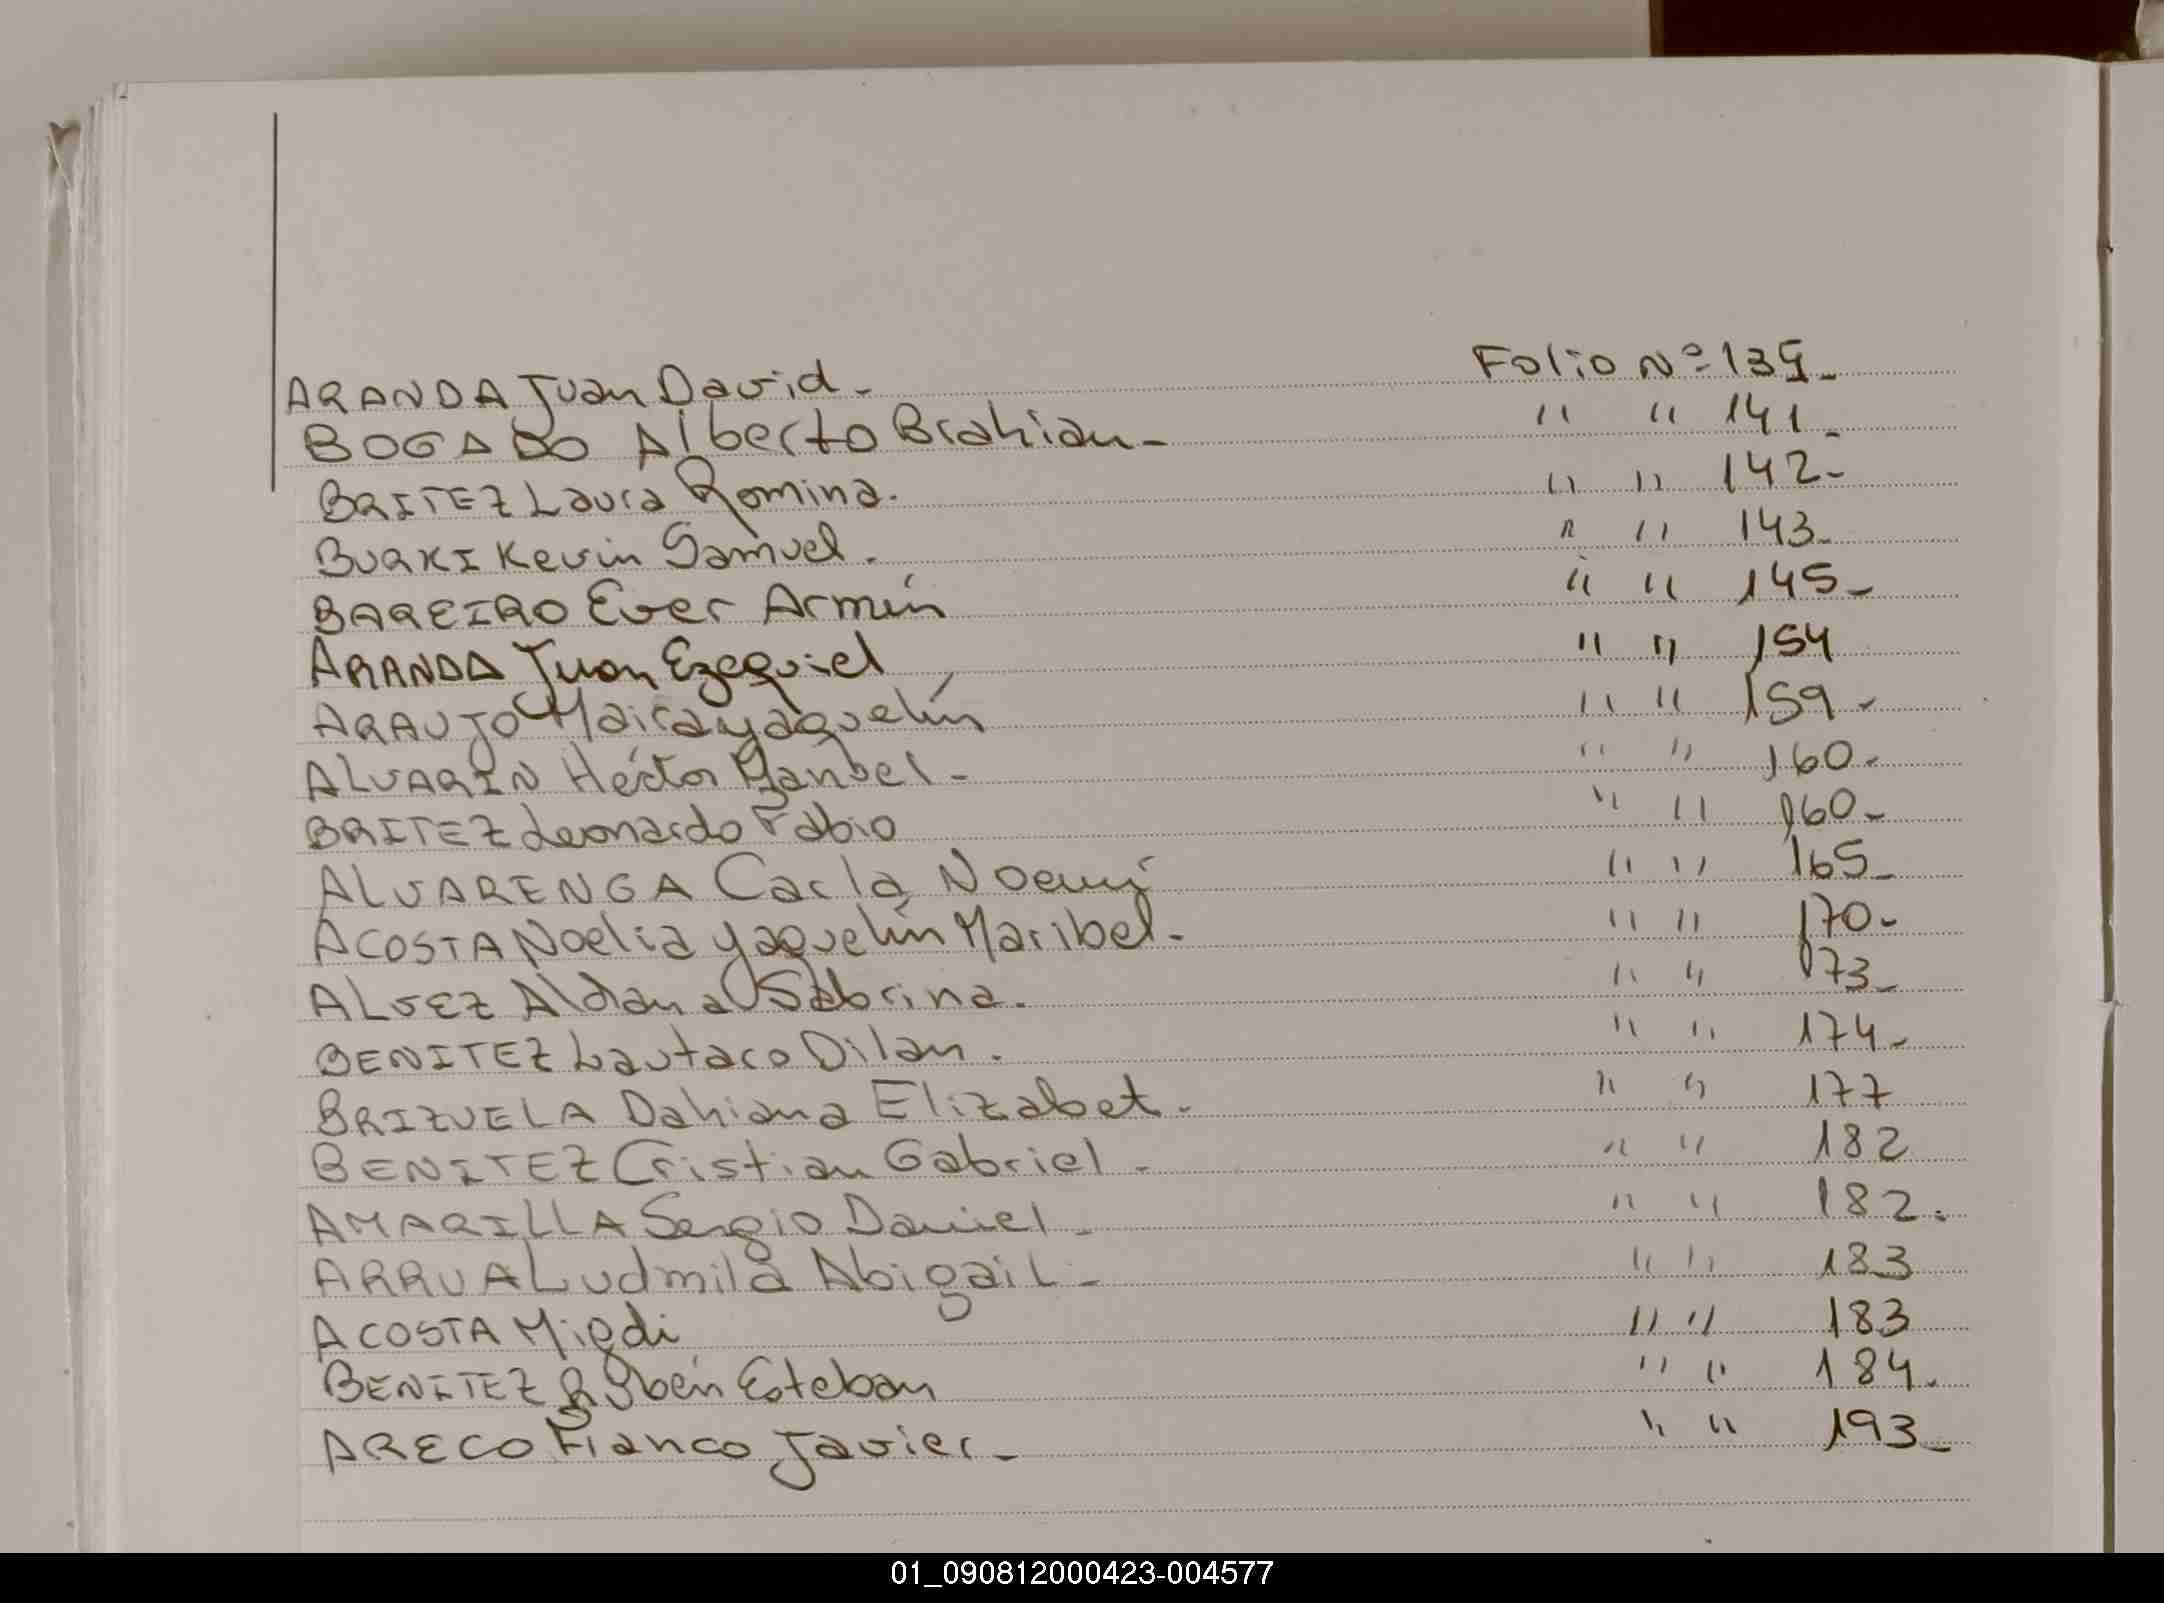 ARANDA Juan David. Folio Nº 139_
BOGADO Alberto Brahian_ " " 141_
BRITEZ Laura Romina. " " 142_
BURKI Kevin Samuel. " " 143_
BAREIRO Ever Armín " " 145_
ARANDA Juan Ezequiel " " 154
ARAUJO Maira yaquelín " " 159.
ALVARIN Héctor _ " " 160.
BRITEZ Leonardo Fabio " " 160_
ALVARENGA Carla Noemí " " 165_
ACOSTA Noelia yaquelín Maribel_ " " 170_
ALVEZ Aldana Sabrina. " " 173_
BENITEZ Lautaro Dilan. " " 174_
BRIZUELA Dahiana Elizabet. " " 177
BENITEZ Cristian Gabriel_ " " 182
AMARILLA Sergio Daniel_ " " 182.
ARRUA Ludmila Abigail_ " " 183
ACOSTA " " 183
BENITEZ Rubén Esteban " " 184.
ARECO Franco Javier_ " " 193_
01_090812000423-004577